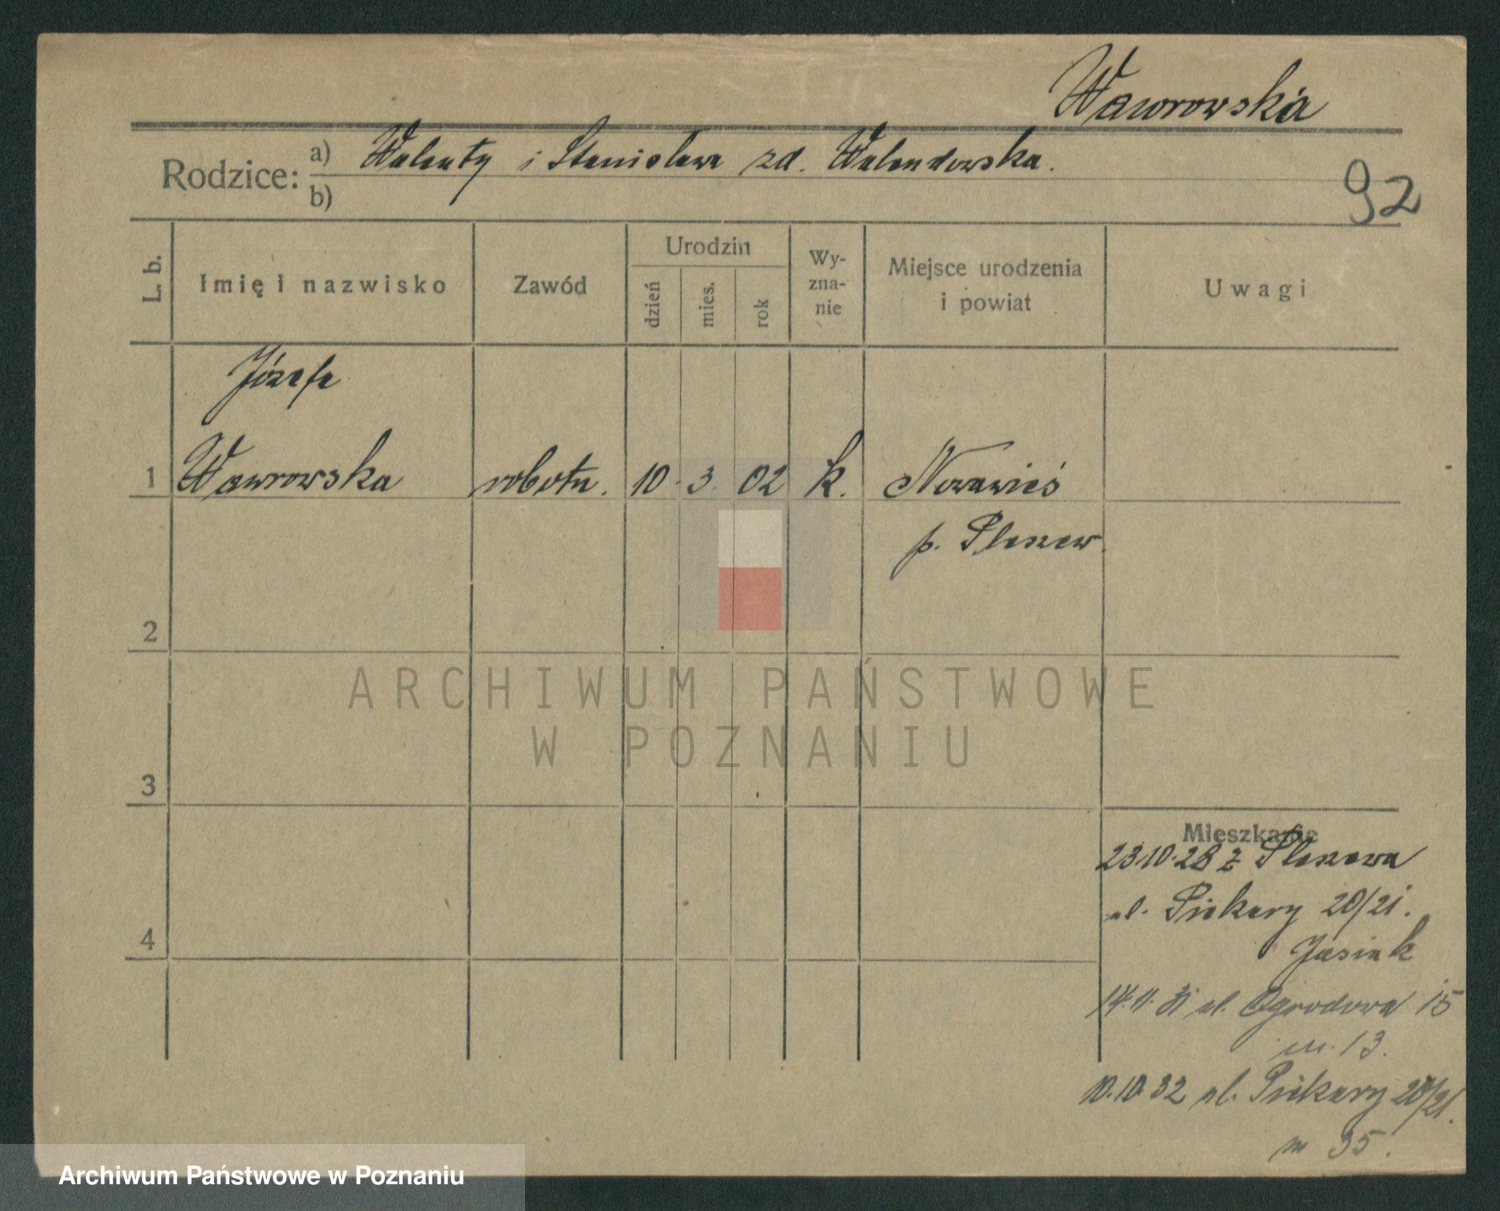 Wawrowska
Rodzice: a) Walenty i Stanisława zd. Walendowska.
b)
92
L. b. Imię i nazwisko Zawód Urodzin dzień mies. rok Wyznanie Miejsce urodzenia i powiat Uwagi
Józefa
1 Wawrowska robotn. 10. 3. 02 k. Nowawieś
p. Pleszew
2
3
4
Mieszkanie
23.10.28 z Pleszewa
ul. Piekary 20/21.
Jasiak
14.11.31 ul. Ogrodowa 15
m. 13.
10.10.32 ul. Piekary 20/21.
m 35.
ARCHIWUM PAŃSTWOWE
W POZNANIU
Archiwum Państwowe w Poznaniu